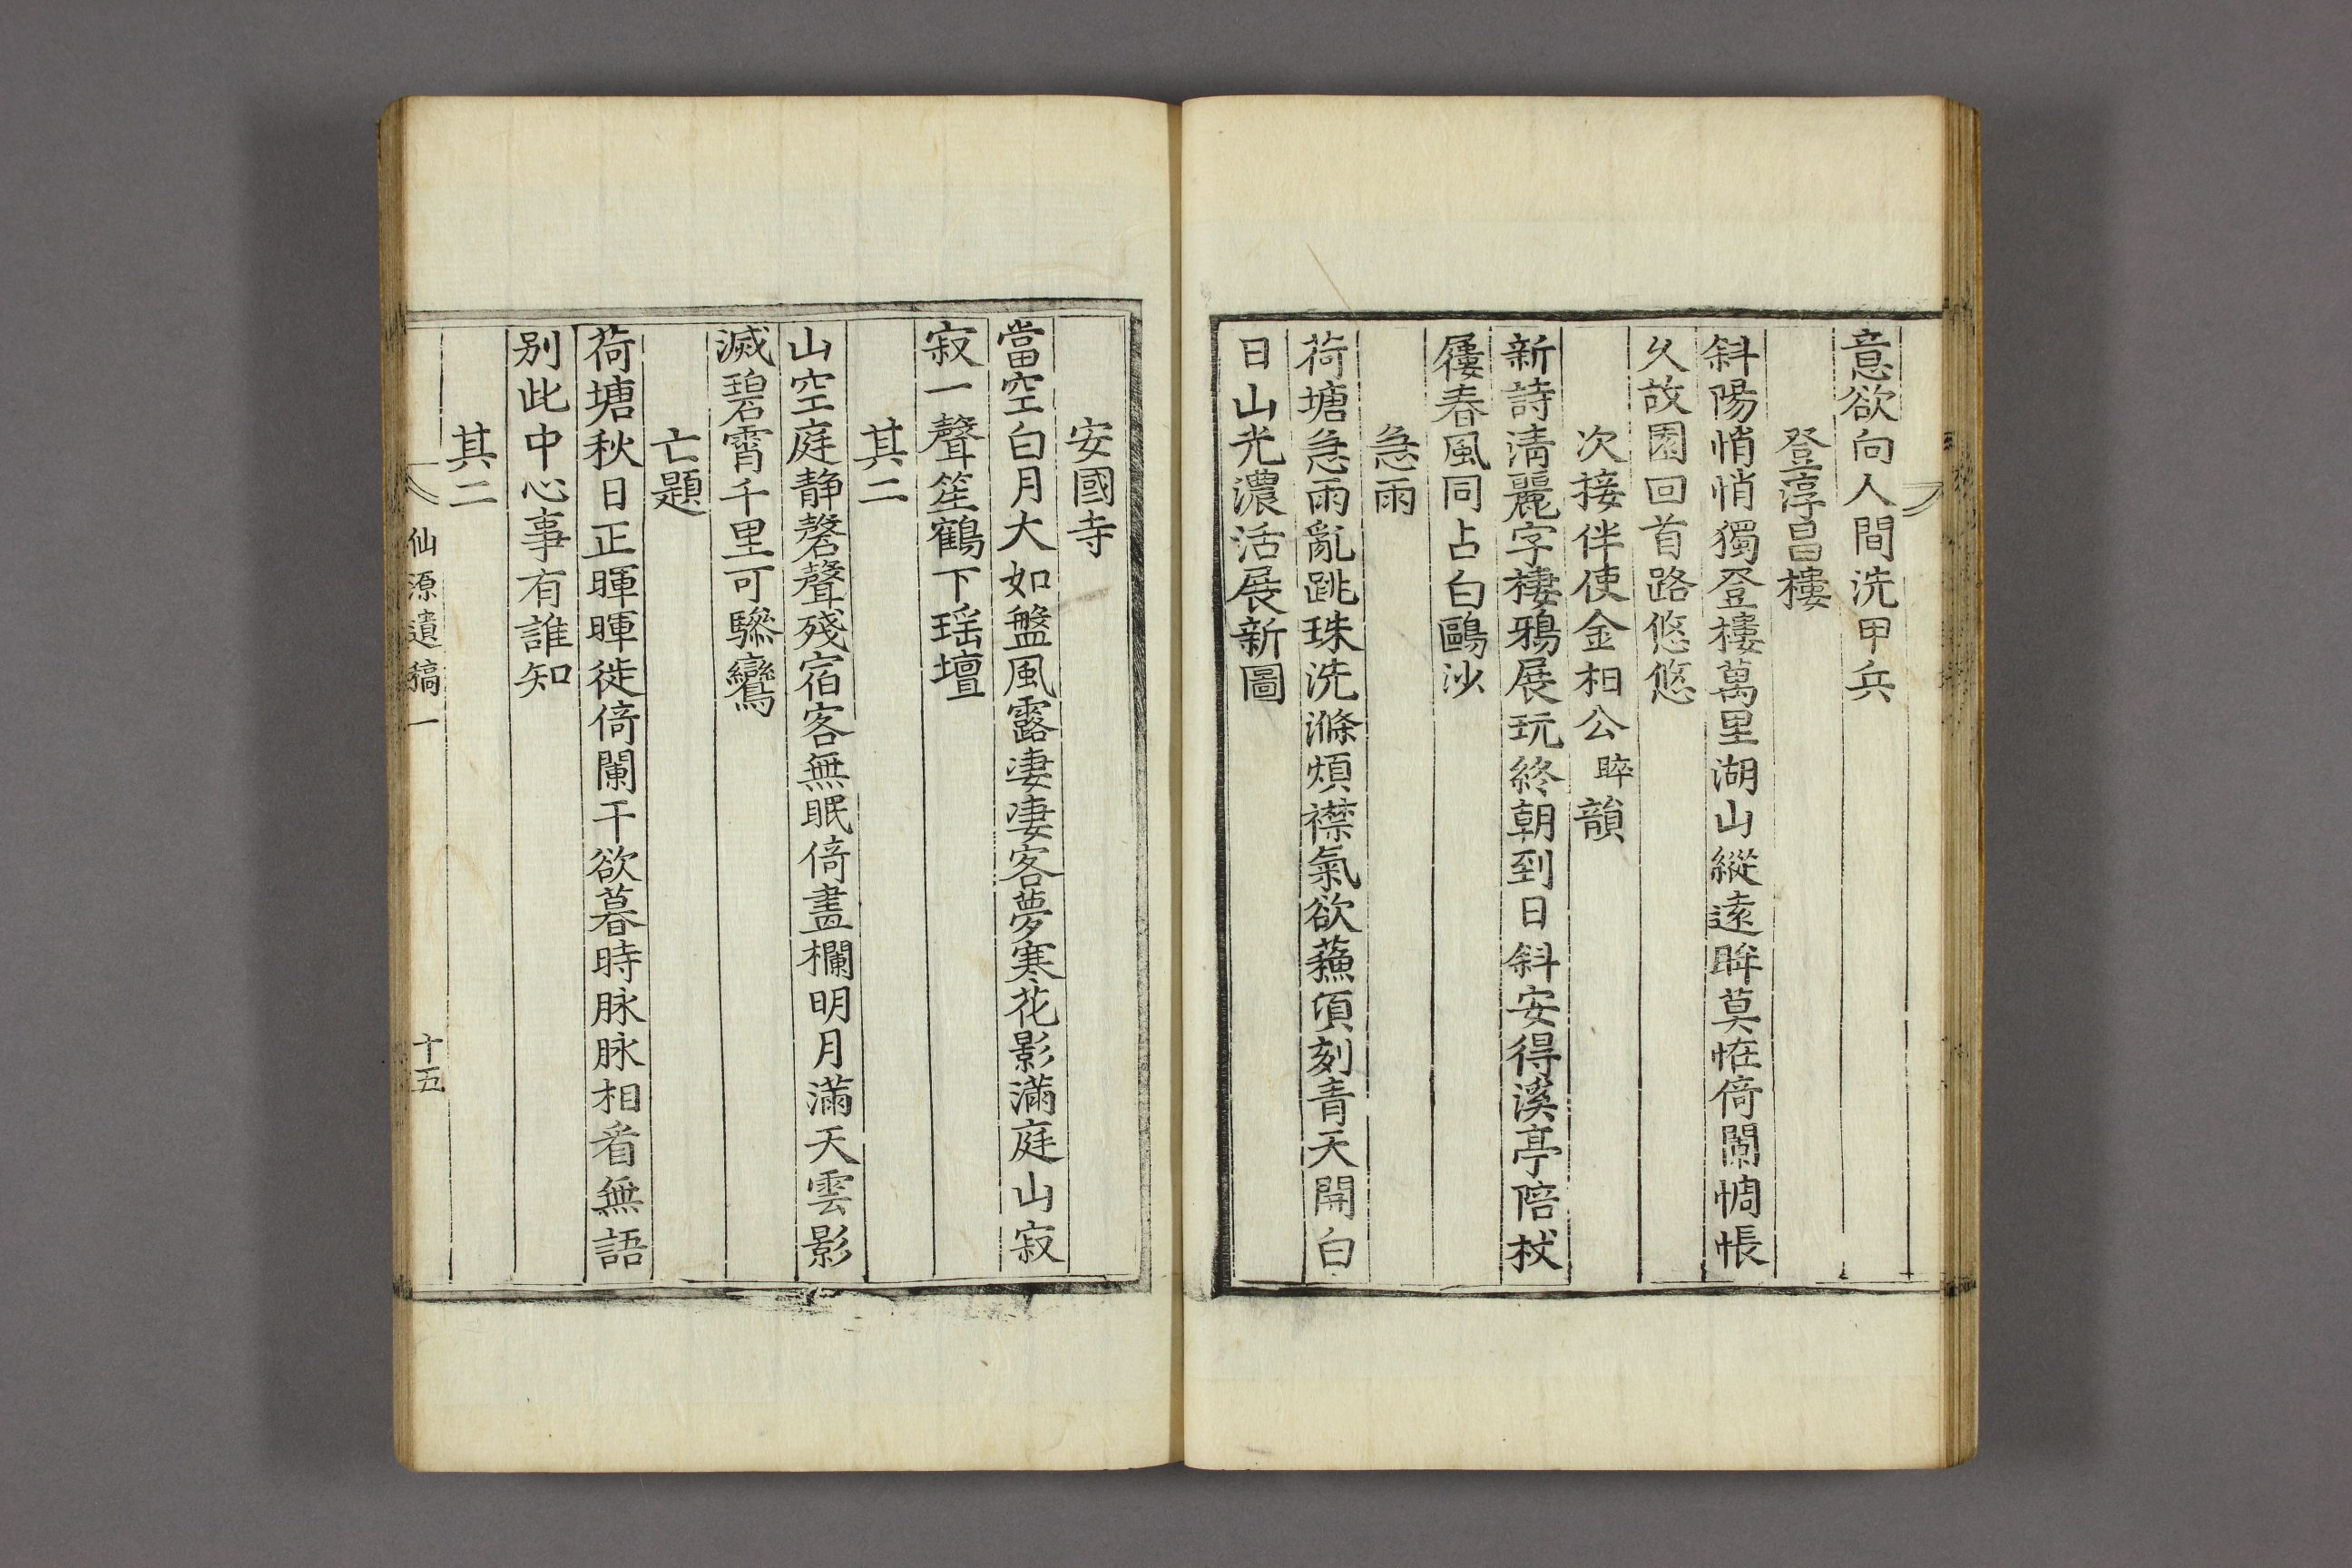 意欲向人間洗甲兵
登淳昌樓
斜陽悄悄獨登樓萬里湖山縱遠眸莫恠倚闌惆悵
久故園回首路悠悠
次接伴使金相公晬韻
新詩淸麗字棲鴉展玩終朝到日斜安得溪亭陪杖
屨春風同占白鷗沙
急雨
荷塘急雨亂跳珠洗滌煩襟氣欲蘓須刻青天開白
日山光濃活展新圖
安國寺
當空白月大如盤風露凄凄客夢寒花影滿庭山寂
寂一聲笙鶴下瑶壇
其二
山空庭静磬聲殘宿客無眠倚盡欄明月滿天雲影
滅碧霄千里可驂鸞
亡題
荷塘秋日正暉暉徙倚闌干欲暮時脉脉相看無語
别此中心事有誰知
其二
仙源遺稿一
十五